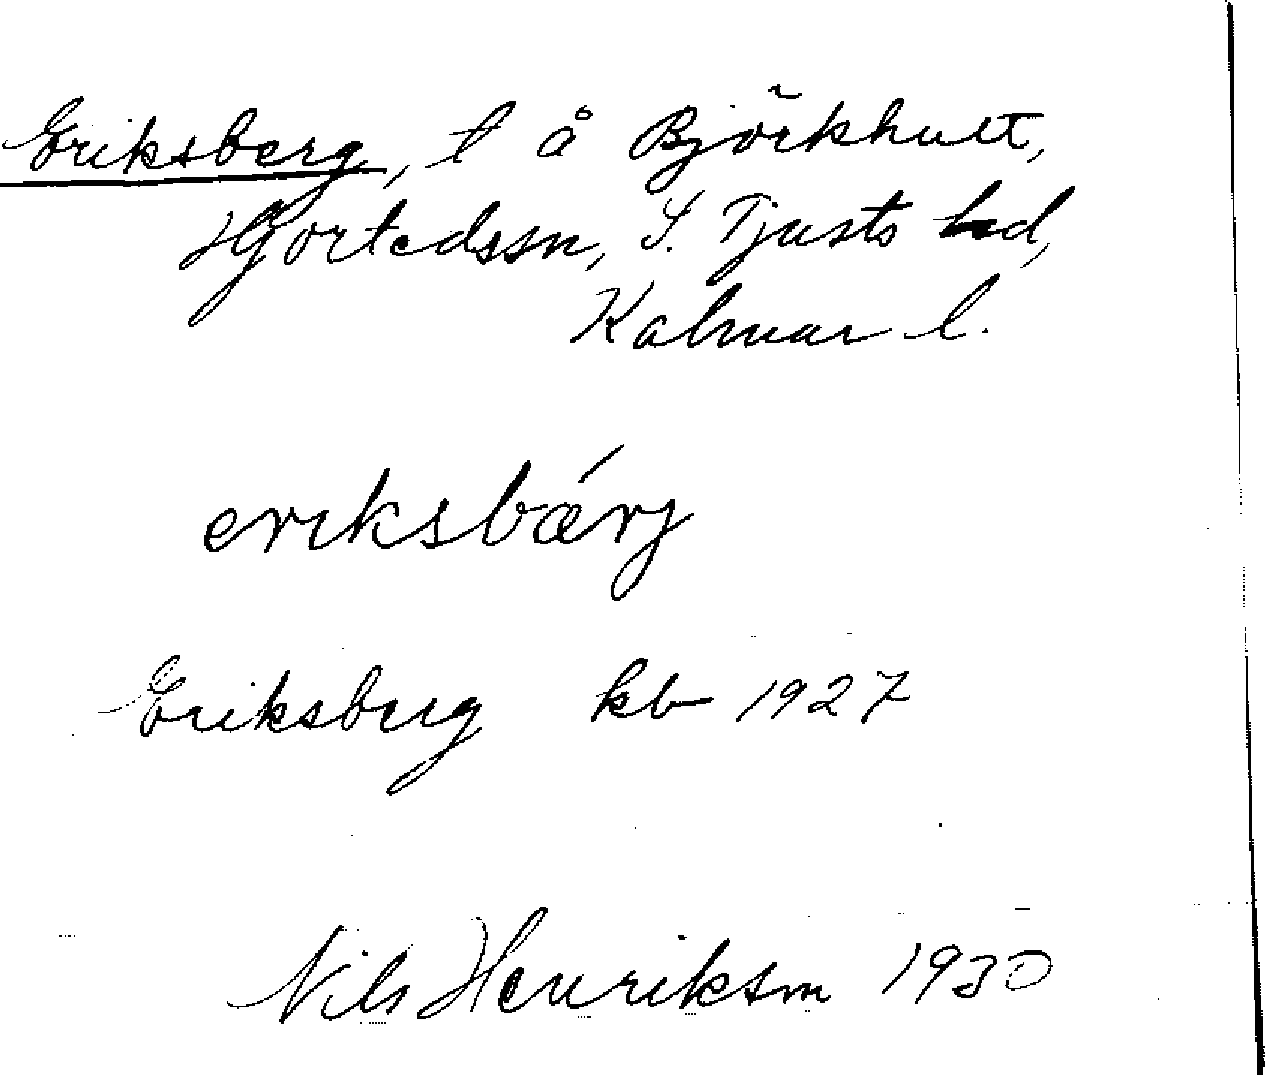 Eriksberg, t å Björkhult,
Hjortedssn, S. Tjusts hd,
Kalmar l.
eriksbærj́
Eriksberg kb 1927
Nils Henriksson 1930